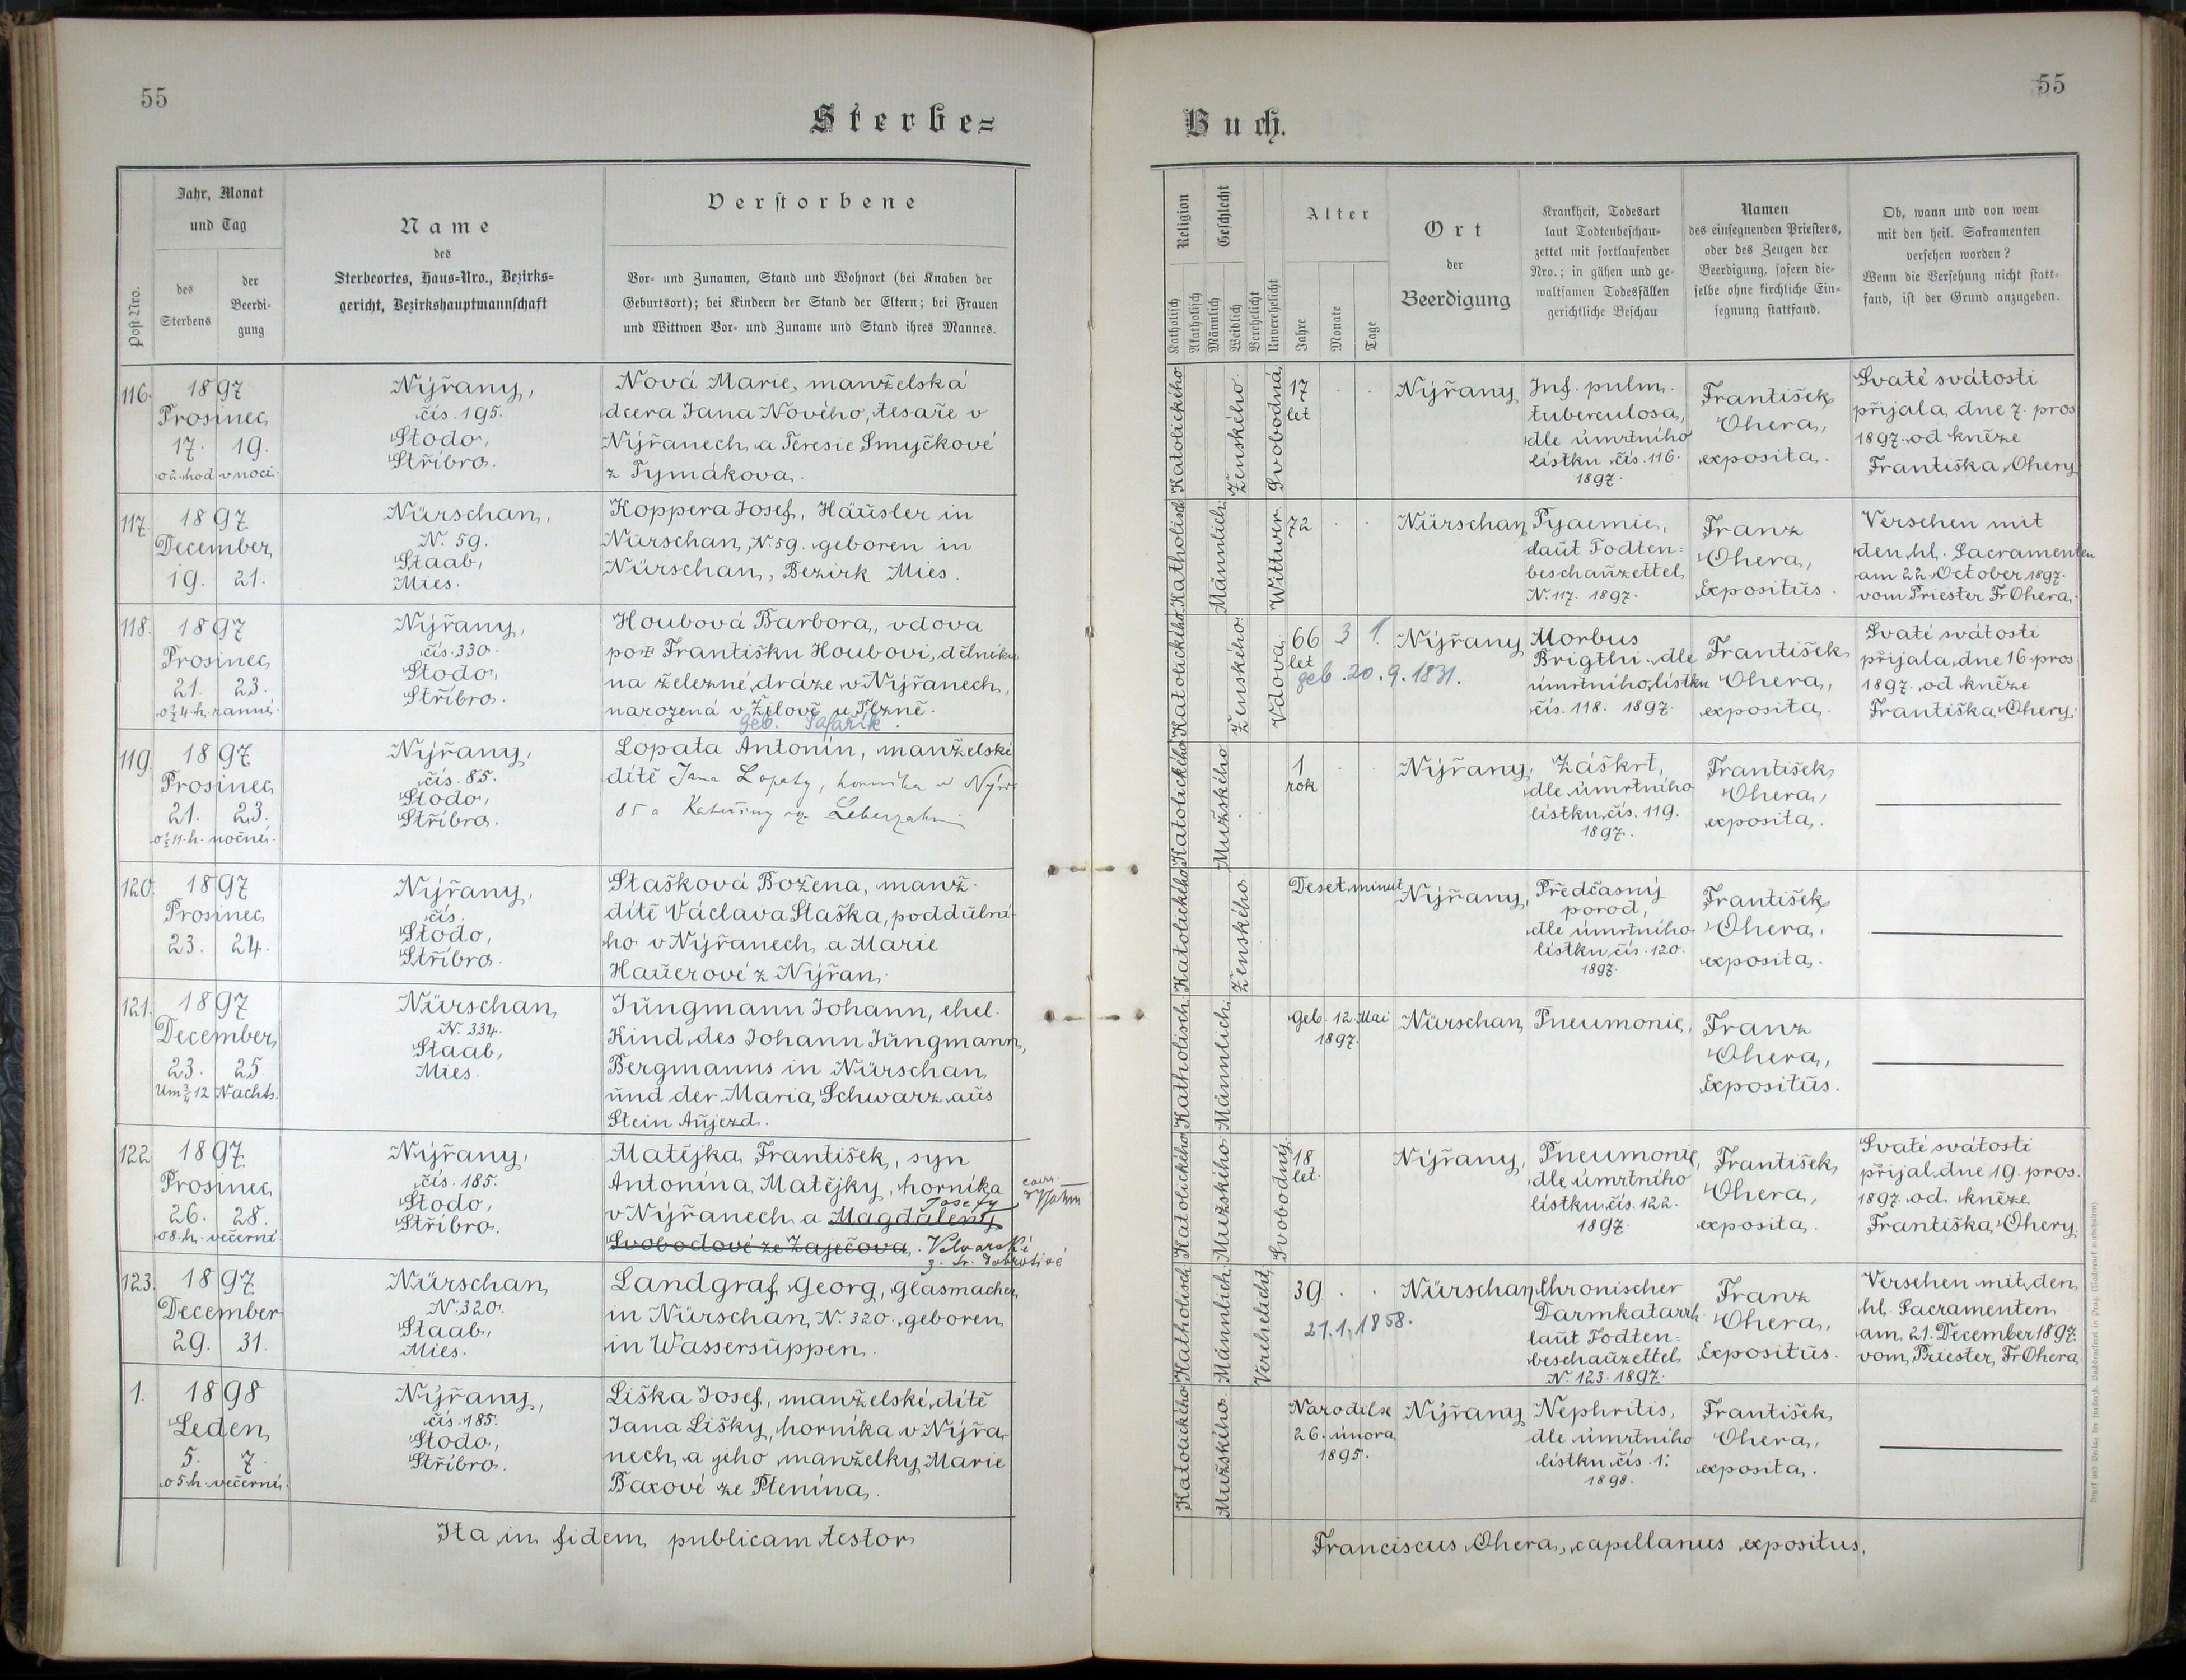 55
55
Sterbe=
Buch.
Post-Nro.
Jahr, Monat
und Tag
des
Sterbens
der
Beerdi-
gung
Name
des
Sterbeortes, Haus-Nro., Bezirks-
gericht, Bezirkshauptmannschaft
Verstorbene
Vor- und Zunamen, Stand und Wohnort (bei Knaben der
Geburtsort); bei Kindern der Stand der Eltern; bei Frauen
und Wittwen Vor- und Zuname und Stand ihres Mannes.
Religion
Katholisch
Akatholisch
Geschlecht
Männlich
Weiblich
Verehelicht
Unverehelicht
Alter
Jahre
Monate
Tage
Ort
der
Beerdigung
Krankheit, Todesart
laut Todtenbeschau-
zettel mit fortlaufender
Nro.; in gähen und ge-
waltsamen Todesfällen
gerichtliche Beschau
Namen
des einsegnenden Priesters,
oder des Zeugen der
Beerdigung, sofern die-
selbe ohne kirchliche Ein-
segnung stattfand.
Ob, wann und von wem
mit den heil. Sakramenten
versehen worden?
Wenn die Versehung nicht statt-
fand, ist der Grund anzugeben.
116.
1897
Prosinec
17. 19.
v noci.
Nýřany,
čís. 195.
Stodo,
Stříbro.
Nová Marie, manželská
dcera Jana Nového, tesaře v
Nýřanech a Teresie Smyčkové
z Tymákova.
Katolického
Ženského.
Svobodná.
17
let
Nýřany
Inf. pulm.
tuberculosa,
dle úmrtního
lístku čís. 116.
1897.
František
Ohera,
exposita.
Svaté svátosti
přijala dne 7. pros
1897. od kněze
Františka Ohery
117.
1897
December
19. 21.
Nürschan,
N. 59.
Staab,
Mies.
Koppera Josef, Häusler in
Nürschan, N. 59. geboren in
Nürschan, Bezirk Mies.
Katholisch
Männlich.
Wittwer.
72
Nürschan
Pyaemie,
laut Todten=
beschauzettel
N. 117. 1897.
Franz
Ohera,
Expositus.
Versehen mit
den hl. Sacramenten
am 22. October 1897.
vom Priester Fr Ohera.
118.
1897
Prosinec
21. 23.
o ½4. h. ranní.
Nýřany,
čís. 330.
Stodo,
Stříbro.
Houbová Barbora, vdova
po † Františku Houbovi, dělníku
na železné dráze v Nýřanech,
narozená v Žilově u Plzně.
geb. Šafařík.
Katolického
Ženského.
Vdova.
66 3 1.
let
geb. 20. 9. 1831.
Nýřany
Morbus
Brigthi. dle
úmrtního lístku
čís. 118. 1897.
František
Ohera,
exposita.
Svaté svátosti
přijala dne 16 pros.
1897. od kněze
Františka Ohery.
119.
1897
Prosinec
21. 23.
o ½11. h. noční.
Nýřany,
čís. 85.
Stodo,
Stříbro.
Lopata Antonín, manželské
dítě Jana Lopaty, horníka v Nýř.
85 a Kateřiny roz. Leberzahn
Katolického
Mužského.
1
rok
Nýřany,
Záškrt,
dle úmrtního
lístku čís. 119.
1897.
František
Ohera,
exposita.
120.
1897
Prosinec
23. 24.
Nýřany,
čís.
Stodo,
Stříbro.
Stašková Božena, manž.
dítě Václava Staška, poddůlní-
ho v Nýřanech a Marie
Hauerové z Nýřan.
Katolického
Ženského.
Deset minut
Nýřany,
Předčasný
porod,
dle úmrtního
lístku čís. 120.
1897.
František
Ohera,
exposita.
121.
1897
December
23. 25.
Um ¾12 Nachts.
Nürschan
N. 334.
Staab,
Mies.
Jungmann Johann, ehel.
Kind des Johann Jungmann,
Bergmanns in Nürschan
und der Maria Schwarz aus
Stein Aujezd.
Katholisch.
Männlich.
geb. 12. Mai
1897.
Nürschan
Pneumonie,
Franz
Ohera,
Expositus.
122
1897
Prosinec
26. 28.
o 8. h. večerní
Nýřany,
čís. 185.
Stodo,
Stříbro.
Matějka František, syn
Antonína Matějky, horníka
Josefy
v Nýřanech a Magdaleny
Svobodové ze Zaječova. Velvarské
z Sv. Dobrotivé
Katolického
Mužského.
Svobodný.
18
let.
Nýřany,
Pneumonie,
dle úmrtního
lístku čís. 122.
1897.
František
Ohera,
exposita.
Svaté svátosti
přijal dne 19. pros.
1897. od kněze
Františka Ohery
123.
1897
December
29. 31.
Nürschan
N. 320.
Staab,
Mies.
Landgraf Georg, Glasmacher
in Nürschan, N. 320. geboren
in Wassersuppen.
Katholisch
Männlich.
Verehelicht
39
21. 1. 1858.
Nürschan
Chronischer
Darmkatarrh.
laut Todten=
beschauzettel
N. 123. 1897.
Franz
Ohera,
Expositus.
Versehen mit den
hl. Sacramenten
am 21. December 1897.
vom Priester Fr Ohera.
1.
1898
Leden
5. 7.
o 5 h. večerní.
Nýřany,
čís. 185.
Stodo,
Stříbro.
Liška Josef, manželské dítě
Jana Lišky, horníka v Nýřa-
nech a jeho manželky Marie
Baxové ze Ptenína.
Katolického
Mužského.
Narodil se
26. února
1895.
Nýřany
Nephritis,
dle úmrtního
lístku čís. 1.
1898.
František
Ohera,
exposita.
Ita in fidem publicam testor
Franciscus Ohera, capellanus expositus.